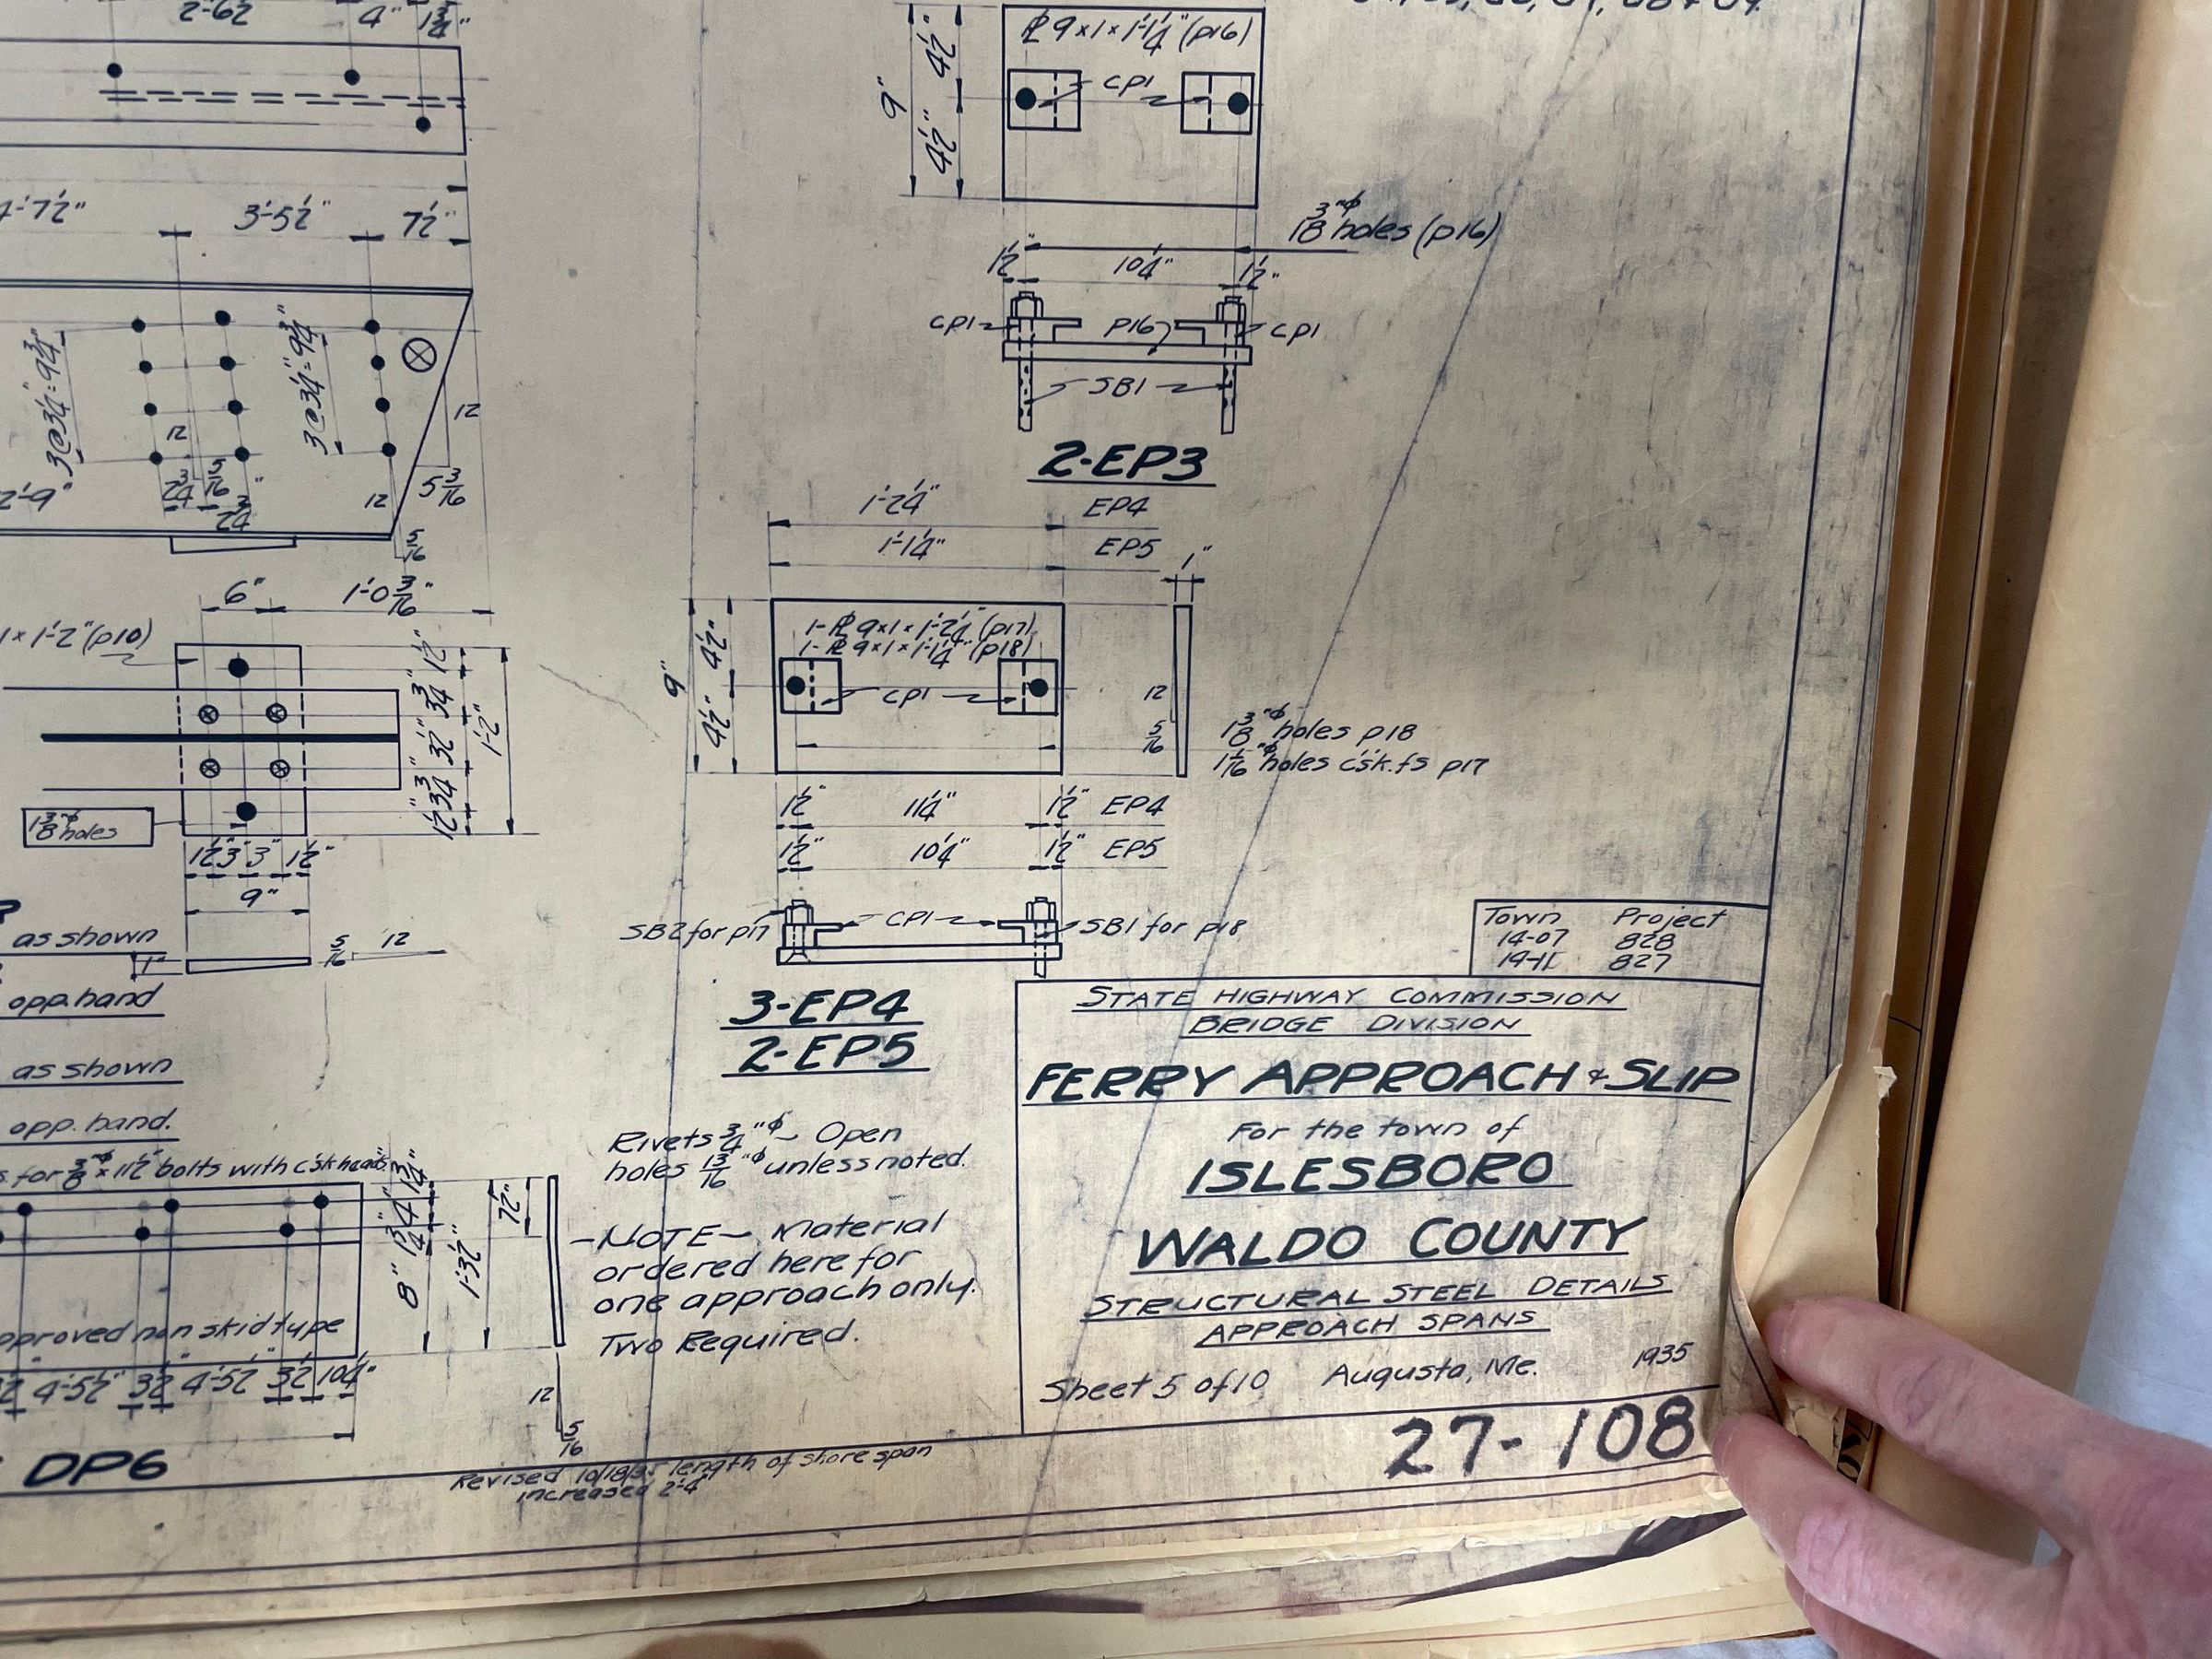 2'-6½" 4" 1¾"
4'-7½" 3'-5½" 7½"
3@3¼"=9¾"
3@3¼"=9¾"
12
12
2¾ 5/16 2¾"
12
5 3/16
2'-9"
5/16
6" 1'-0 3/16"
1 x 1'-2" (p10)
1½" 3¾" 3½" 3¾" 1½"
1'-2"
1⅜"φ holes
1½" 3" 3" 1½"
9"
as shown
1"
5/16 12
opp. hand
as shown
opp. hand.
for ⅜"φ x 11½" bolts with c'sk heads
1¾" 4" 1¾" 8"
1'-3½"
7½"
approved non skid type
4'-5½" 3½" 4'-5½" 3½" 10¼"
12
5/16
DP6
℄ 9x1x1'-1¼" (p16)
4½" 4½"
9"
CP1
1⅜"φ holes (p16)
1½" 10¼" 1½"
CP1 p16 CP1
SB1
2-EP3
1'-2¼" EP4
1'-1¼" EP5
1"
1-℄ 9x1x1'-2¼" (p17)
1-℄ 9x1x1'-1¼" (p18)
4½" 4½"
9"
CP1
12
5/16
1⅜"φ holes p18
1 1/16"φ holes c'sk. fs p17
1½" 11¼" 1½" EP4
1½" 10¼" 1½" EP5
SB2 for p17 CP1 SB1 for p18
3-EP4
2-EP5
Rivets ¾"φ - Open
holes 13/16"φ unless noted.
-NOTE- Material
ordered here for
one approach only.
Two Required.
Revised 10/18/35 length of shore span
increased 2'-4"
Town Project
14-07 828
19-11 827
STATE HIGHWAY COMMISSION
BRIDGE DIVISION
FERRY APPROACH & SLIP
For the town of
ISLESBORO
WALDO COUNTY
STRUCTURAL STEEL DETAILS
APPROACH SPANS
Sheet 5 of 10 Augusta, Me. 1935
27-108